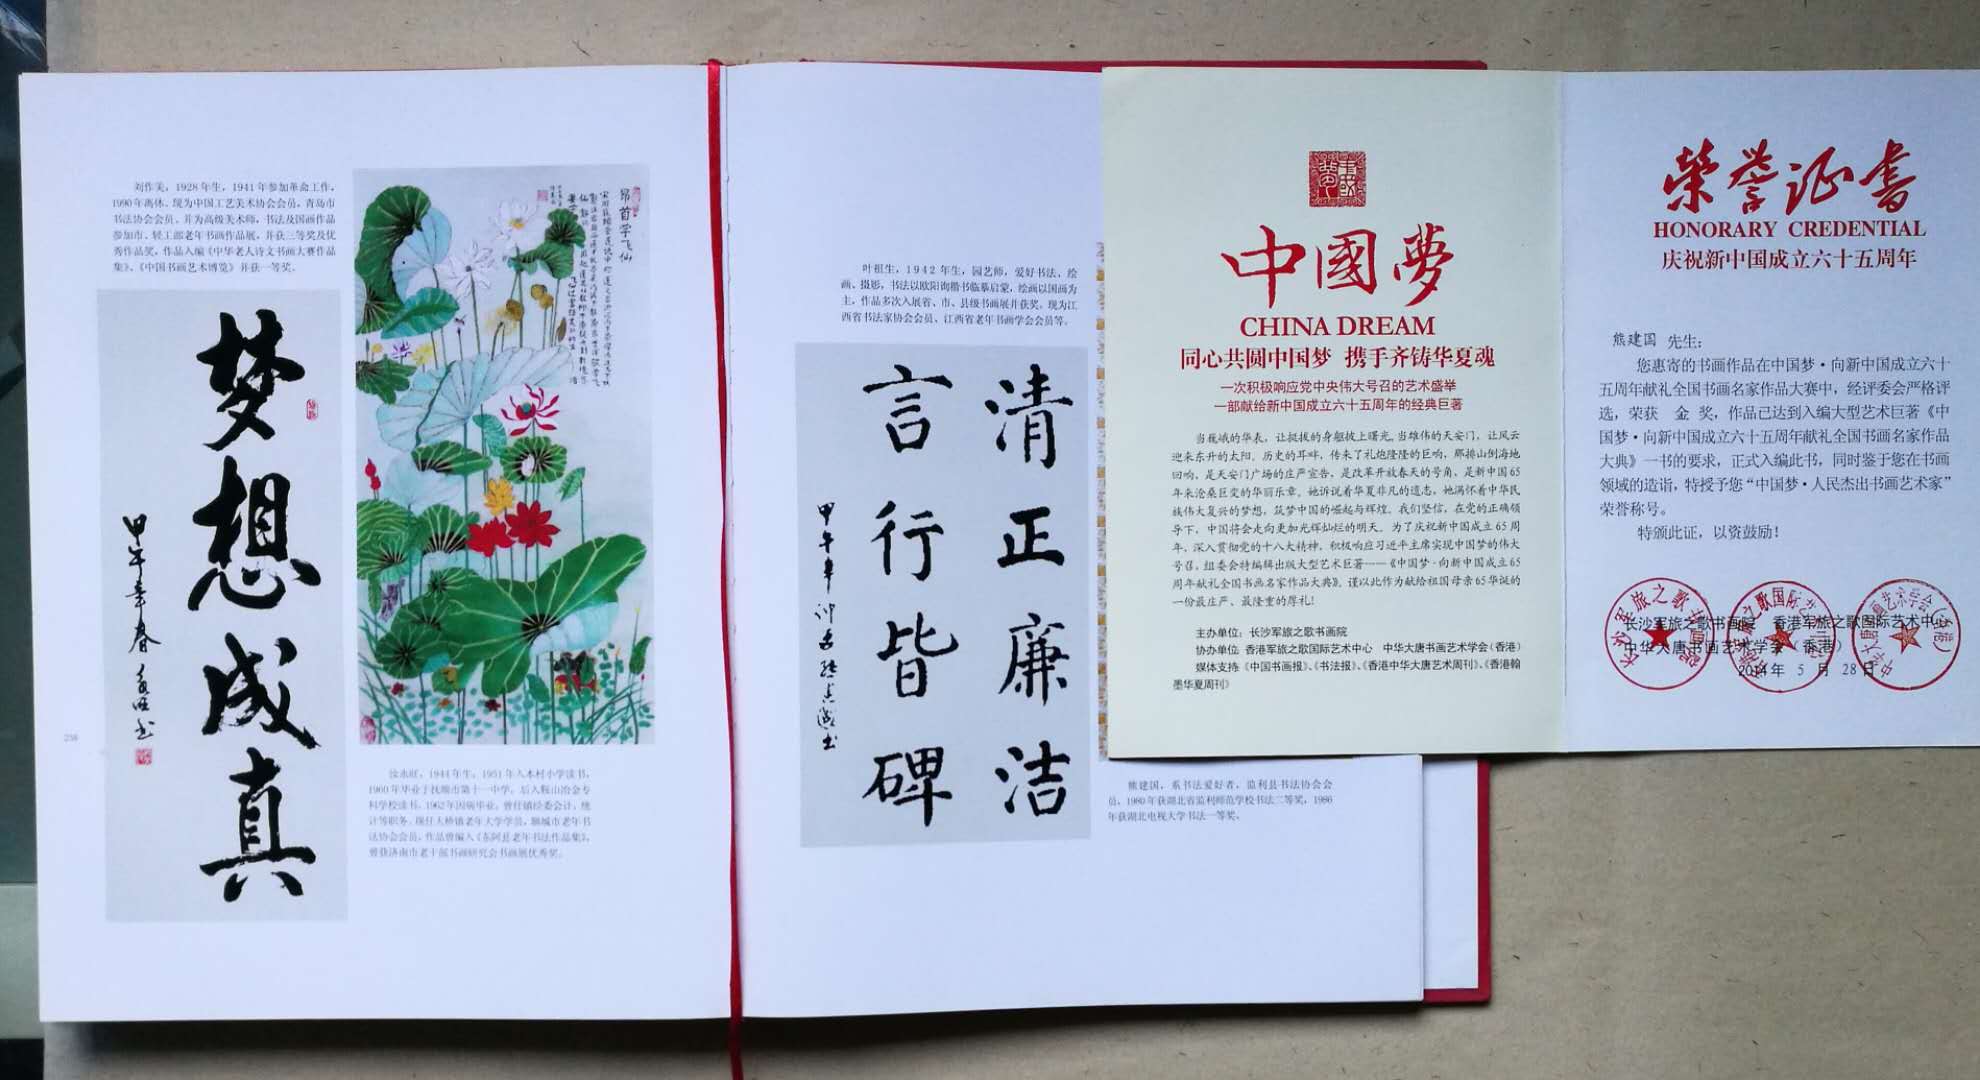 刘作美，1928年生，1941年参加革命工作，
1990年离休。现为中国工艺美术协会会员，青岛市
书法协会会员。并为高级美术师，书法及国画作品
参加市、轻工部老年书画作品展，并获三等奖及优
秀作品奖，作品入编《中华老人诗文书画大赛作品
集》、《中国书画艺术博览》并获一等奖。
梦想成真
甲午年春
昂首学飞仙
徐永旺，1944年生，1951年入本村小学读书，
1960年毕业于抚顺市第十一中学，后入鞍山冶金专
科学校读书，1962年因病毕业，曾任镇经委会计，统
计等职务。现任大桥镇老年大学学员，聊城市老年书
法协会会员，作品曾编入《东阿县老年书法作品集》，
曾获济南市老干部书画研究会书画展优秀奖。
238
叶祖生，1942年生，园艺师，爱好书法、绘
画、摄影，书法以欧阳询楷书临摹启蒙，绘画以国画为
主，作品多次入展省、市、县级书画展并获奖。现为江
西省书法家协会会员、江西省老年书画学会会员等。
清正廉洁
言行皆碑
甲午年
熊建国，系书法爱好者，监利县书法协会会
员，1980年获湖北省监利师范学校书法二等奖，1986
年获湖北电视大学书法一等奖。
中國夢
CHINA DREAM
同心共圆中国梦 携手齐铸华夏魂
一次积极响应党中央伟大号召的艺术盛举
一部献给新中国成立六十五周年的经典巨著
当巍峨的华表，让挺拔的身躯披上曙光，当雄伟的天安门，让风云
迎来东升的太阳。历史的耳畔，传来了礼炮隆隆的巨响，那排山倒海地
回响，是天安门广场的庄严宣告，是改革开放春天的号角，是新中国65
年来沧桑巨变的华丽乐章。她诉说着华夏非凡的遗志，她满怀着中华民
族伟大复兴的梦想，筑梦中国的崛起与辉煌。我们坚信，在党的正确领
导下，中国将会走向更加光辉灿烂的明天。为了庆祝新中国成立65周
年，深入贯彻党的十八大精神，积极响应习近平主席实现中国梦的伟大
号召，组委会特编辑出版大型艺术巨著——《中国梦·向新中国成立65
周年献礼全国书画名家作品大典》。谨以此作为献给祖国母亲65华诞的
一份最庄严、最隆重的厚礼！
主办单位：长沙军旅之歌书画院
协办单位 香港军旅之歌国际艺术中心 中华大唐书画艺术学会（香港）
媒体支持《中国书画报》、《书法报》、《香港中华大唐艺术周刊》、《香港翰
墨华夏周刊》
荣誉证书
HONORARY CREDENTIAL
庆祝新中国成立六十五周年
熊建国 先生：
您惠寄的书画作品在中国梦·向新中国成立六十
五周年献礼全国书画名家作品大赛中，经评委会严格评
选，荣获 金 奖，作品已达到入编大型艺术巨著《中
国梦·向新中国成立六十五周年献礼全国书画名家作品
大典》一书的要求，正式入编此书，同时鉴于您在书画
领域的造诣，特授予您“中国梦·人民杰出书画艺术家”
荣誉称号。
特颁此证，以资鼓励！
长沙军旅之歌书画院 香港军旅之歌国际艺术中心
中华大唐书画艺术学会（香港）
2014年 5 月 28 日